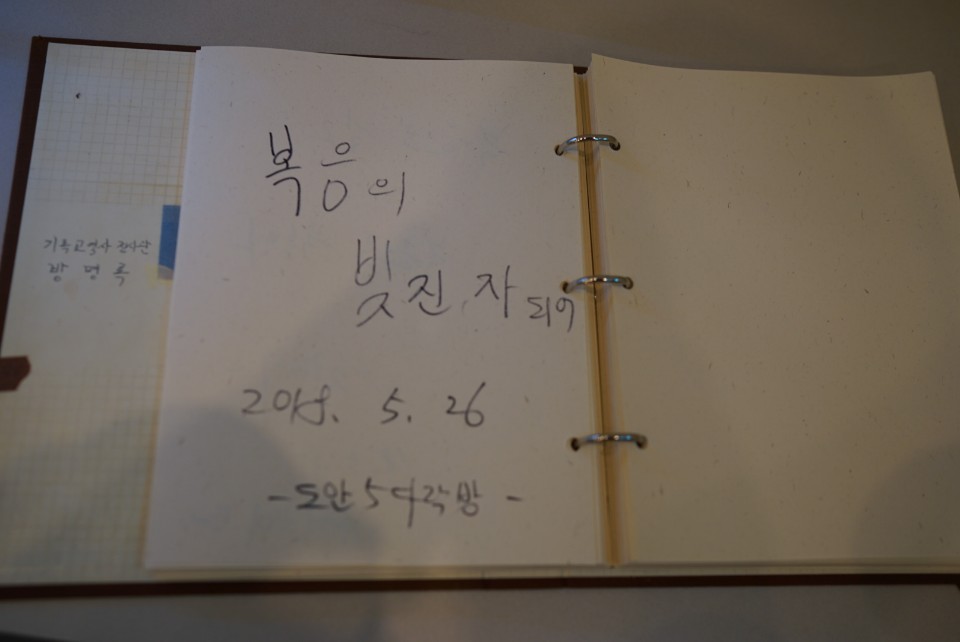 기독교역사 전시관
방명록
복음의
빚진 자 되어
2018. 5. 26
- 도안 5다락방 -